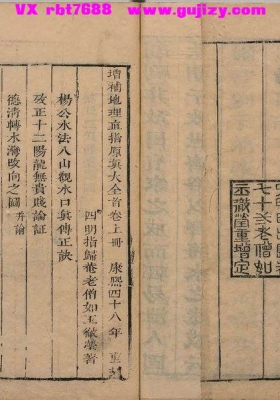 VX rbt7688 www.gujizy.com
七十三老僧如
玉徹瑩重增定
增補地理直指原眞大全首卷上冊 康熙四十八年 重
四明指歸菴老僧如玉徹瑩著
楊公水法八山觀水口眞傳正訣
攷正十二陽龍無貴賤論証
德清轉水灣改向之圖 并論